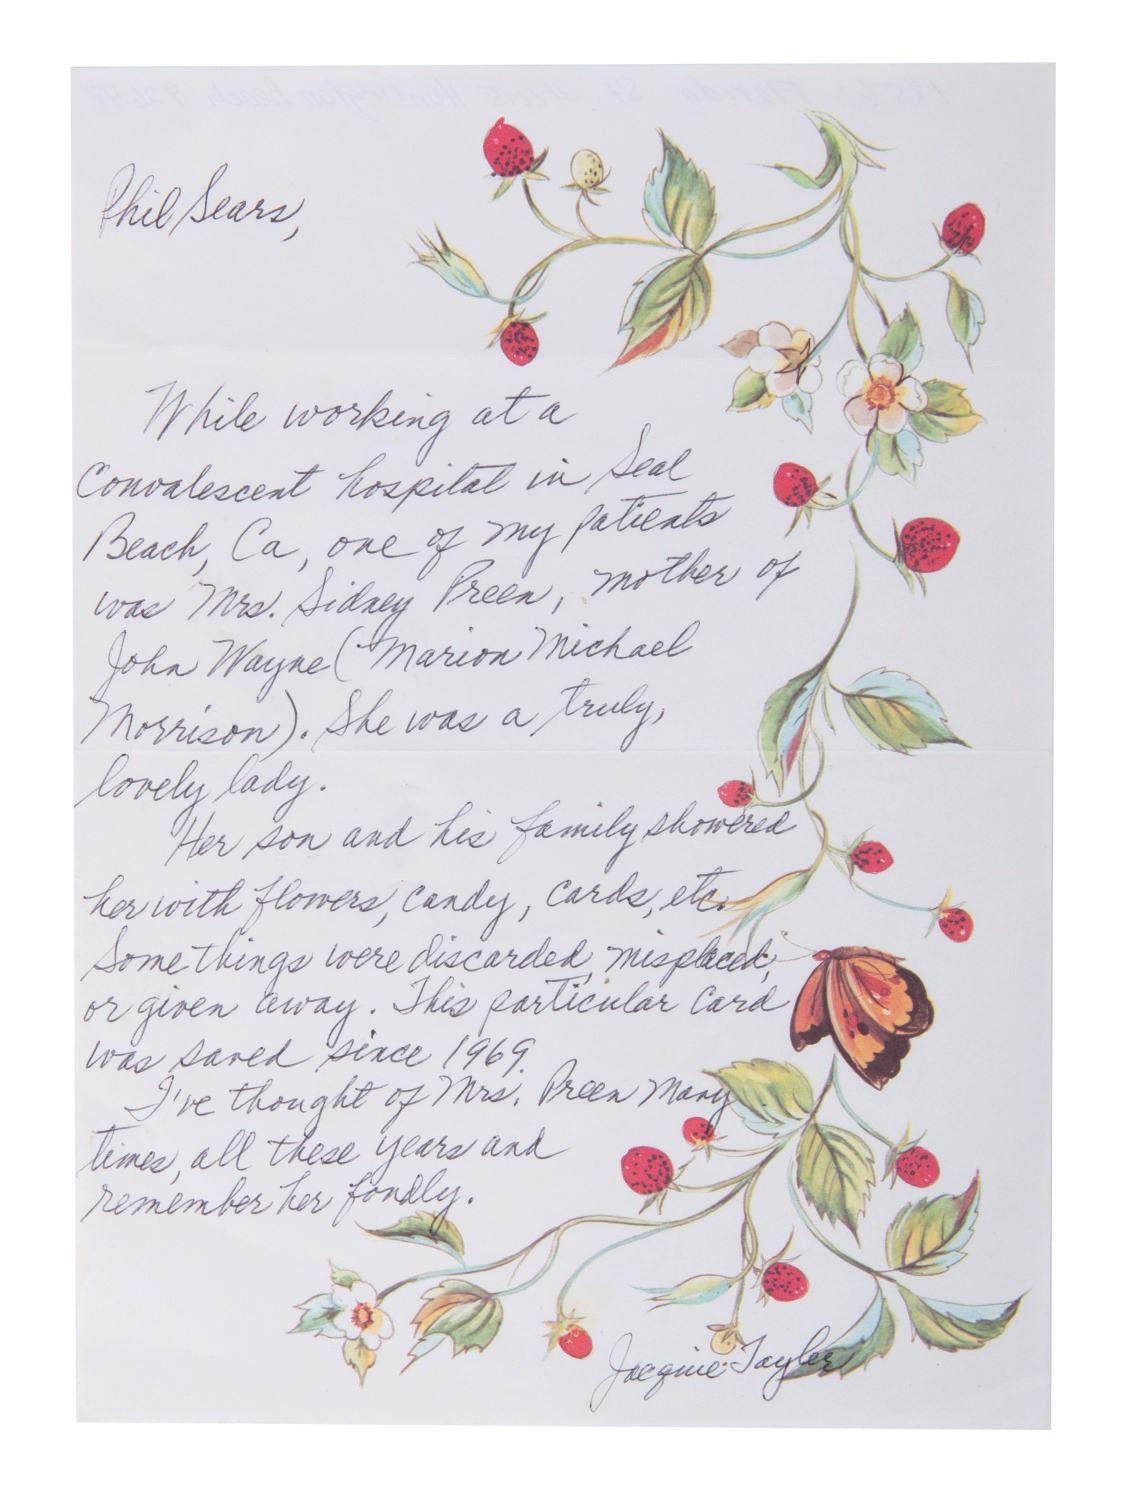 Phil Sears,
While working at a
Convalescent hospital in Seal
Beach, Ca, one of my patients
was Mrs. Sidney Preen, mother of
John Wayne (Marion Michael
Morrison). She was a truly,
lovely lady.
Her son and his family showered
her with flowers, candy, cards, etc.
Some things were discarded, misplaced,
or given away. This particular card
was saved since 1969.
I've thought of Mrs. Preen Many
times, all these years and
remember her fondly.
Jacquie Tayler